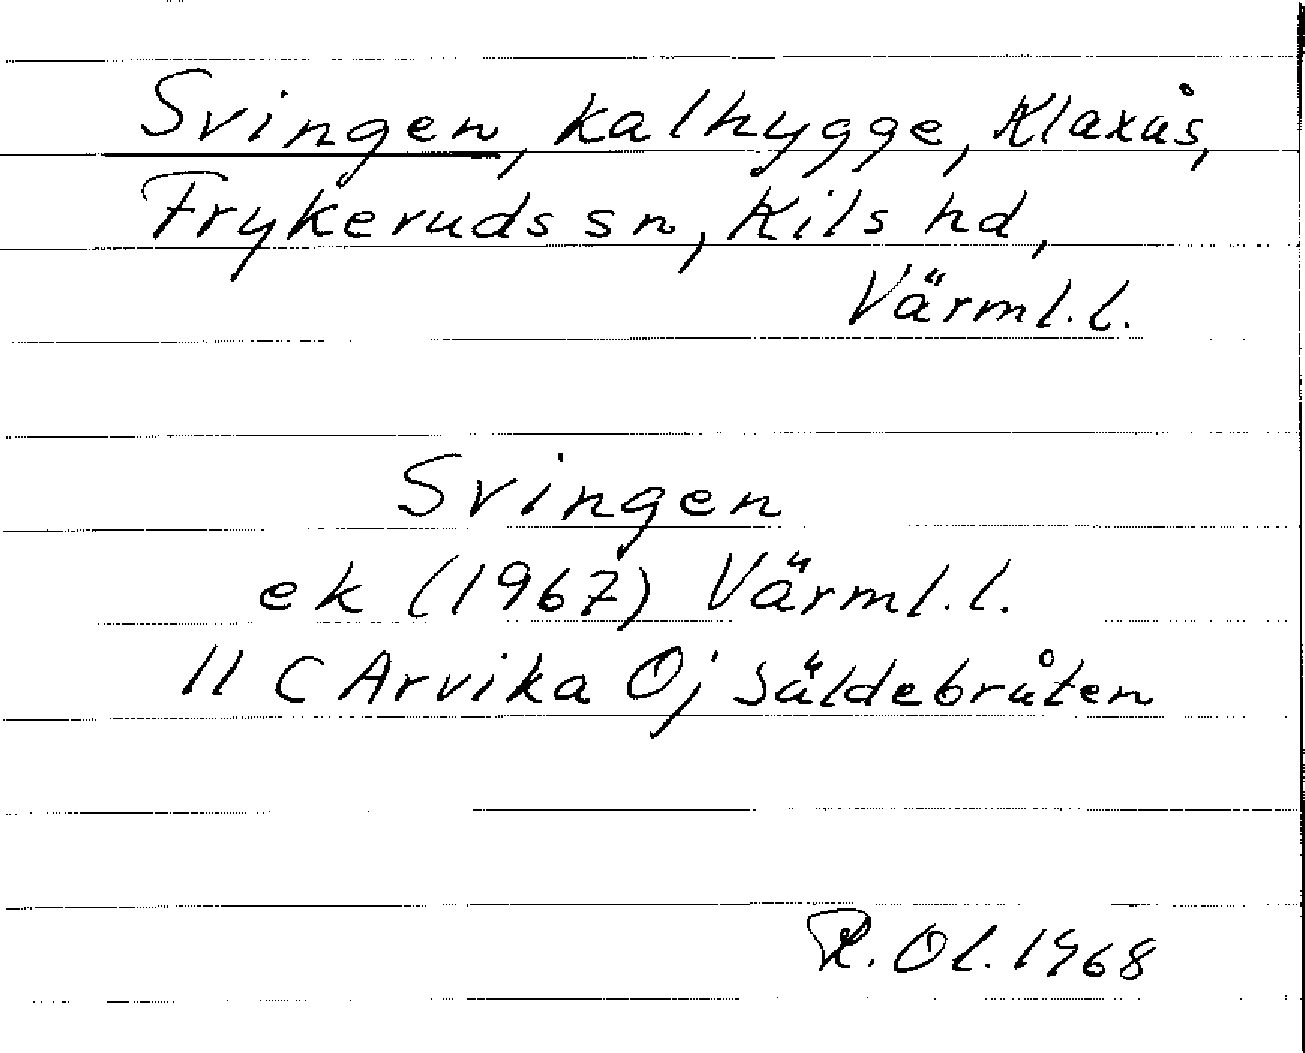 Svingen, kalhygge, Klaxås,
Frykeruds sn, Kils hd,
Värml. l.
Svingen
ek (1967) Värml. l.
11 C Arvika O; Säldebråten
R. Ol. 1968